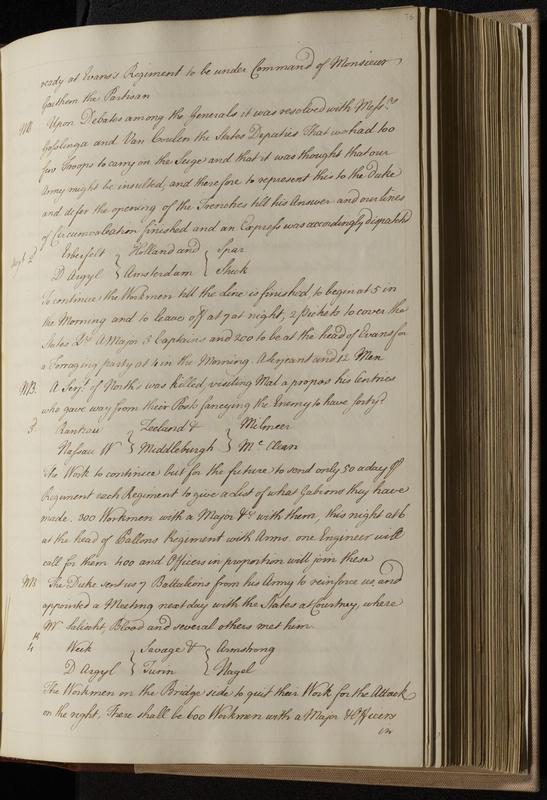 75
ready at Evans's Regiment to be under Command of Monsieur
the Partisan
NB Upon Debates among the Generals it was resolved with Mess.rs
Goslinga and Van the States Deputies That we had too
few Troops to carry on the Seige and that it was thought that our
Army might be insulted, and therefore to represent this to the Duke
and defer the opening of the Trenches till his Answer and our lines
of Circumvalation finished and an Express was accordingly dispatchd
Augt 2d Erbeifelt } Holland and { Spar
D Argyl } Amsterdam { Shick
To continue the Workmen till the line is finished, to begin at 5 in
the Morning and to leave off at 7 at night, 2 Pickets to cover the
States Qrs A Major 3 Captains and 200 to be at the head of Evans for
a Forraging party at 4 in the Morning. A Serjeant and 12 Men
NB. A Serjt of Norths was killed, visiting Mal a propos his Centries
who gave way from their Post fancying the Enemy to have forty'd
3 Rantzau } Zeeland & } Milmeer
Nassau W } Middleburgh } Mc Clean
The Work to continue but for the future to send only 50 a day pr
Regiment each Regiment to give a list of what Gabions they have
made. 300 Workmen with a Major &c with them, this night at 6
at the head of Pallons Regiment with Arms. one Engineer will
call for them 400 and Officers in proportion will join these
NB The Duke sent us 7 Battalions from his Army to reinforce us, and
appointed a Meeting next day with the States at Courtney, where
Mr Salicht, Blood and several others met him.
4th Week } Savage & { Armstrong
D Argyl } Turin { Nagel
The Workmen on the Bridge side to quit their Work for the Attack
on the right, There shall be 600 Workmen with a Major & Officers
in